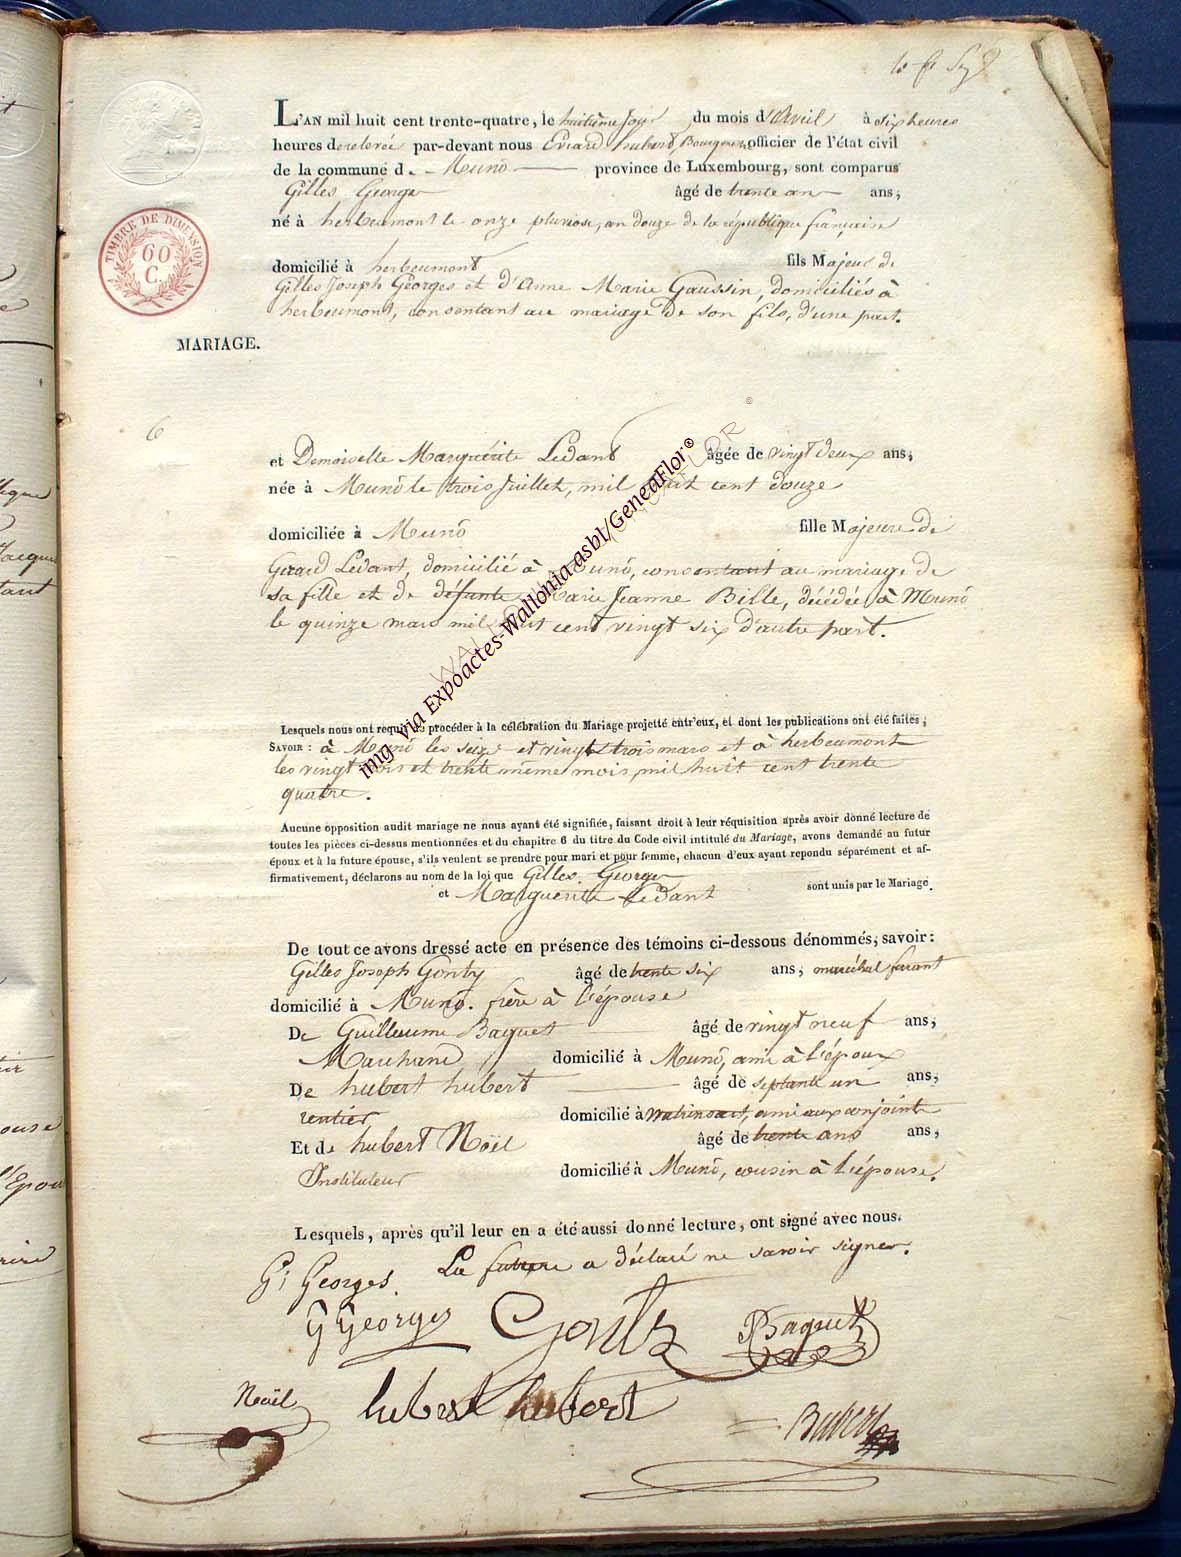 TIMBRE DE DIMENSION
60
C.
L'AN mil huit cent trente-quatre, le huitième jour du mois d'Avril à six heures
heures de relevée par-devant nous Evrard hubert, Bourgmes. officier de l'état civil
de la commune de Munô province de Luxembourg, sont comparus
Gilles George âgé de trente an ans,
né à herbeumont le onze pluviose, an douze de la république française
domicilié à herbeumont fils Majeur de
Gilles Joseph Georges et d'Anne Marie Gaussin, domiciliés à
herbeumont, consentant au mariage de son fils, d'une part.
MARIAGE.
6
et Demoiselle Marguerite Ledant âgée de vingt deux ans,
née à Munô le trois Juillet, mil huit cent douze
domiciliée à Munô fille Majeure de
Girard Ledant, domicilié à Munô, consentant au mariage de
sa fille et de défunte Marie Jeanne Bille, décédée à Munô
le quinze mars mil huit cent vingt six d'autre part.
Lesquels nous ont requis de procéder à la célébration du Mariage projetté entr'eux, et dont les publications ont été faites,
SAVOIR : à Munô les seize et vingt trois mars et à herbeumont
les vingt trois et trente même mois, mil huit cent trente
quatre.
Aucune opposition audit mariage ne nous ayant été signifiée, faisant droit à leur réquisition après avoir donné lecture de
toutes les pièces ci-dessus mentionnées et du chapitre 6 du titre du Code civil intitulé du Mariage, avons demandé au futur
époux et à la future épouse, s'ils veulent se prendre pour mari et pour femme, chacun d'eux ayant repondu séparément et af-
firmativement, déclarons au nom de la loi que Gilles George
et Marguerite Ledant sont unis par le Mariage.
De tout ce avons dressé acte en présence des témoins ci-dessous dénommés, savoir :
Gilles Joseph Gonty âgé de trente six ans, maréchal ferant
domicilié à Munô. frère à l'épouse
De Guillaume Baquet âgé de vingt neuf ans,
Marchand domicilié à Munô, ami à l'époux
De hubert hubert âgé de septante un ans,
rentier domicilié à ami aux conjoints
Et de hubert Noël âgé de trente ans ans,
Instituteur domicilié à Munô, cousin à l'épouse.
Lesquels, après qu'il leur en a été aussi donné lecture, ont signé avec nous.
La future a déclaré ne savoir signer.
Gi Georges.
G Georges Gonty Baquet
Noël hubert hubert
img via Expoactes-Wallonia asbl/GeneaFlor®